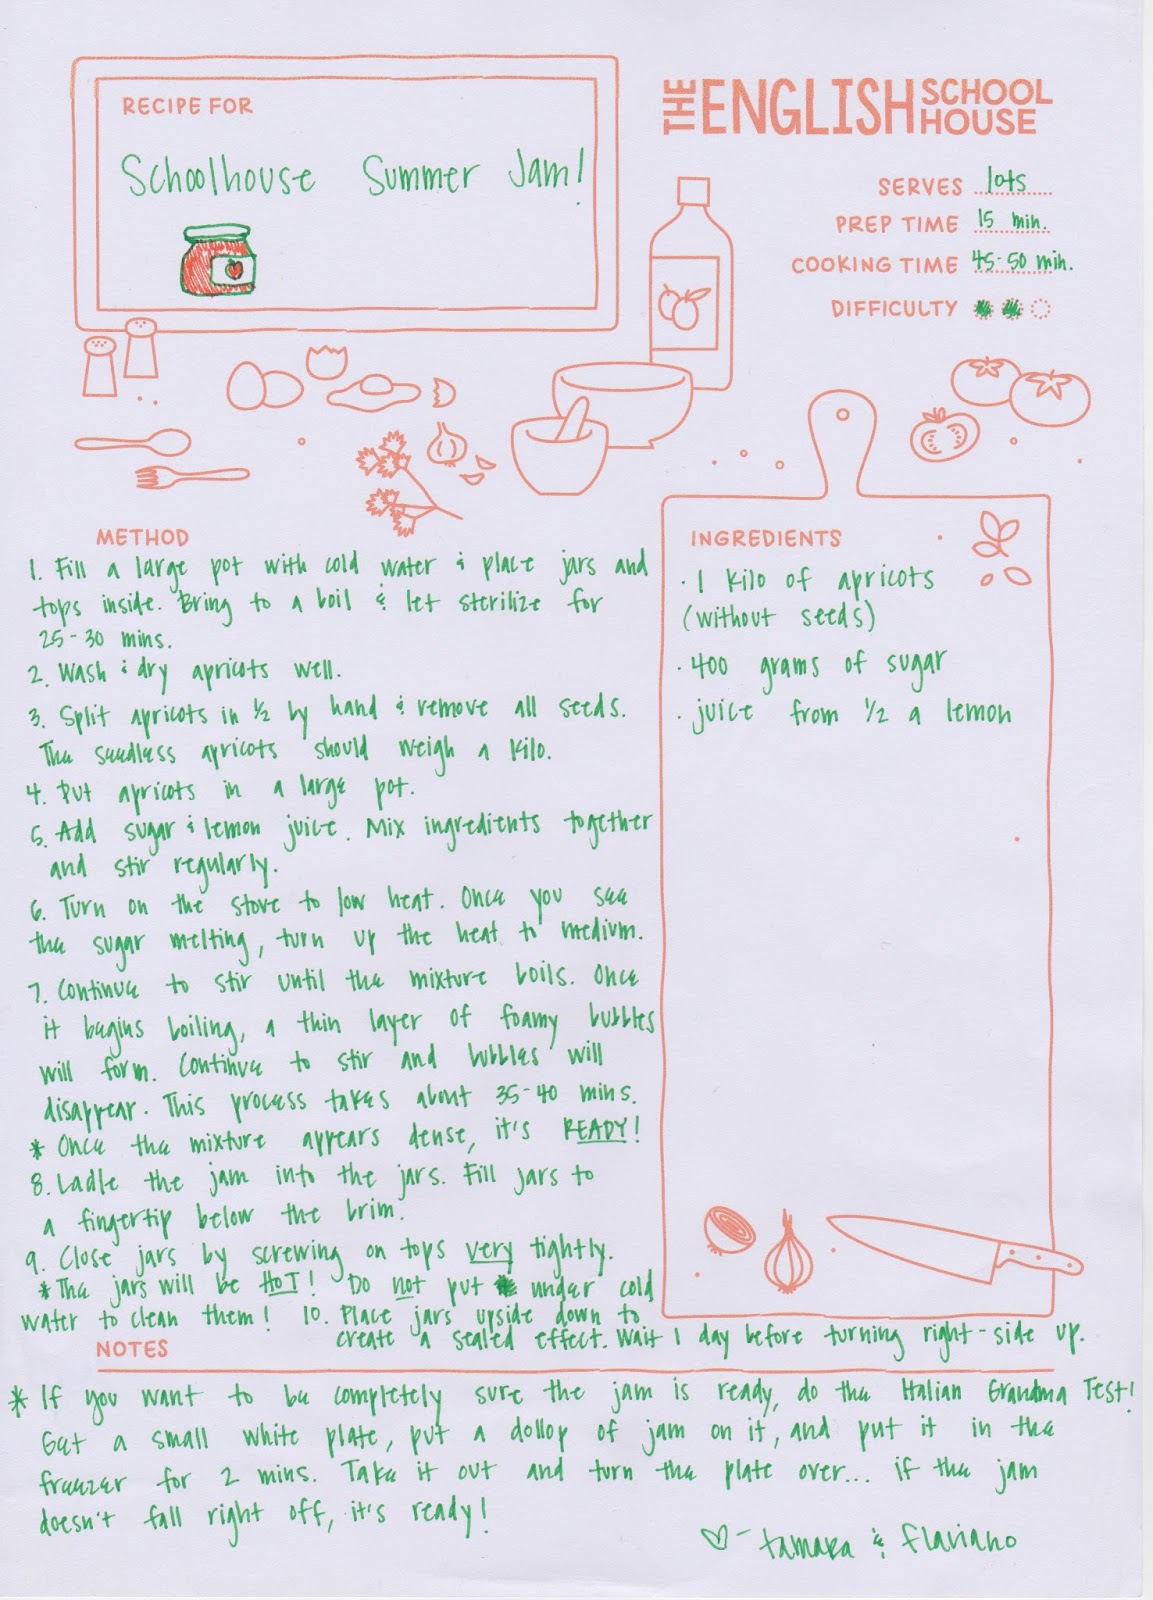 RECIPE FOR
Schoolhouse Summer Jam!
THE ENGLISH SCHOOL HOUSE
SERVES lots
PREP TIME 15 min.
COOKING TIME 45-50 min.
DIFFICULTY
METHOD
1. Fill a large pot with cold water & place jars and
tops inside. Bring to a boil & let sterilize for
25-30 mins.
2. Wash & dry apricots well.
3. Split apricots in 1/2 by hand & remove all seeds.
The seedless apricots should weigh a kilo.
4. Put apricots in a large pot.
5. Add sugar & lemon juice. Mix ingredients together
and stir regularly.
6. Turn on the stove to low heat. Once you see
the sugar melting, turn up the heat to medium.
7. Continue to stir until the mixture boils. Once
it begins boiling, a thin layer of foamy bubbles
will form. Continue to stir and bubbles will
disappear. This process takes about 35-40 mins.
* Once the mixture appears dense, it's READY!
8. Ladle the jam into the jars. Fill jars to
a fingertip below the brim.
9. Close jars by screwing on tops very tightly.
* The jars will be HOT! Do not put under cold
water to clean them! 10. Place jars upside down to
create a sealed effect. Wait 1 day before turning right-side up.
INGREDIENTS
· 1 kilo of apricots
(without seeds)
· 400 grams of sugar
· juice from 1/2 a lemon
NOTES
* If you want to be completely sure the jam is ready, do the Italian Grandma Test!
Get a small white plate, put a dollop of jam on it, and put it in the
freezer for 2 mins. Take it out and turn the plate over... if the jam
doesn't fall right off, it's ready!
♡- tamara & flaviano